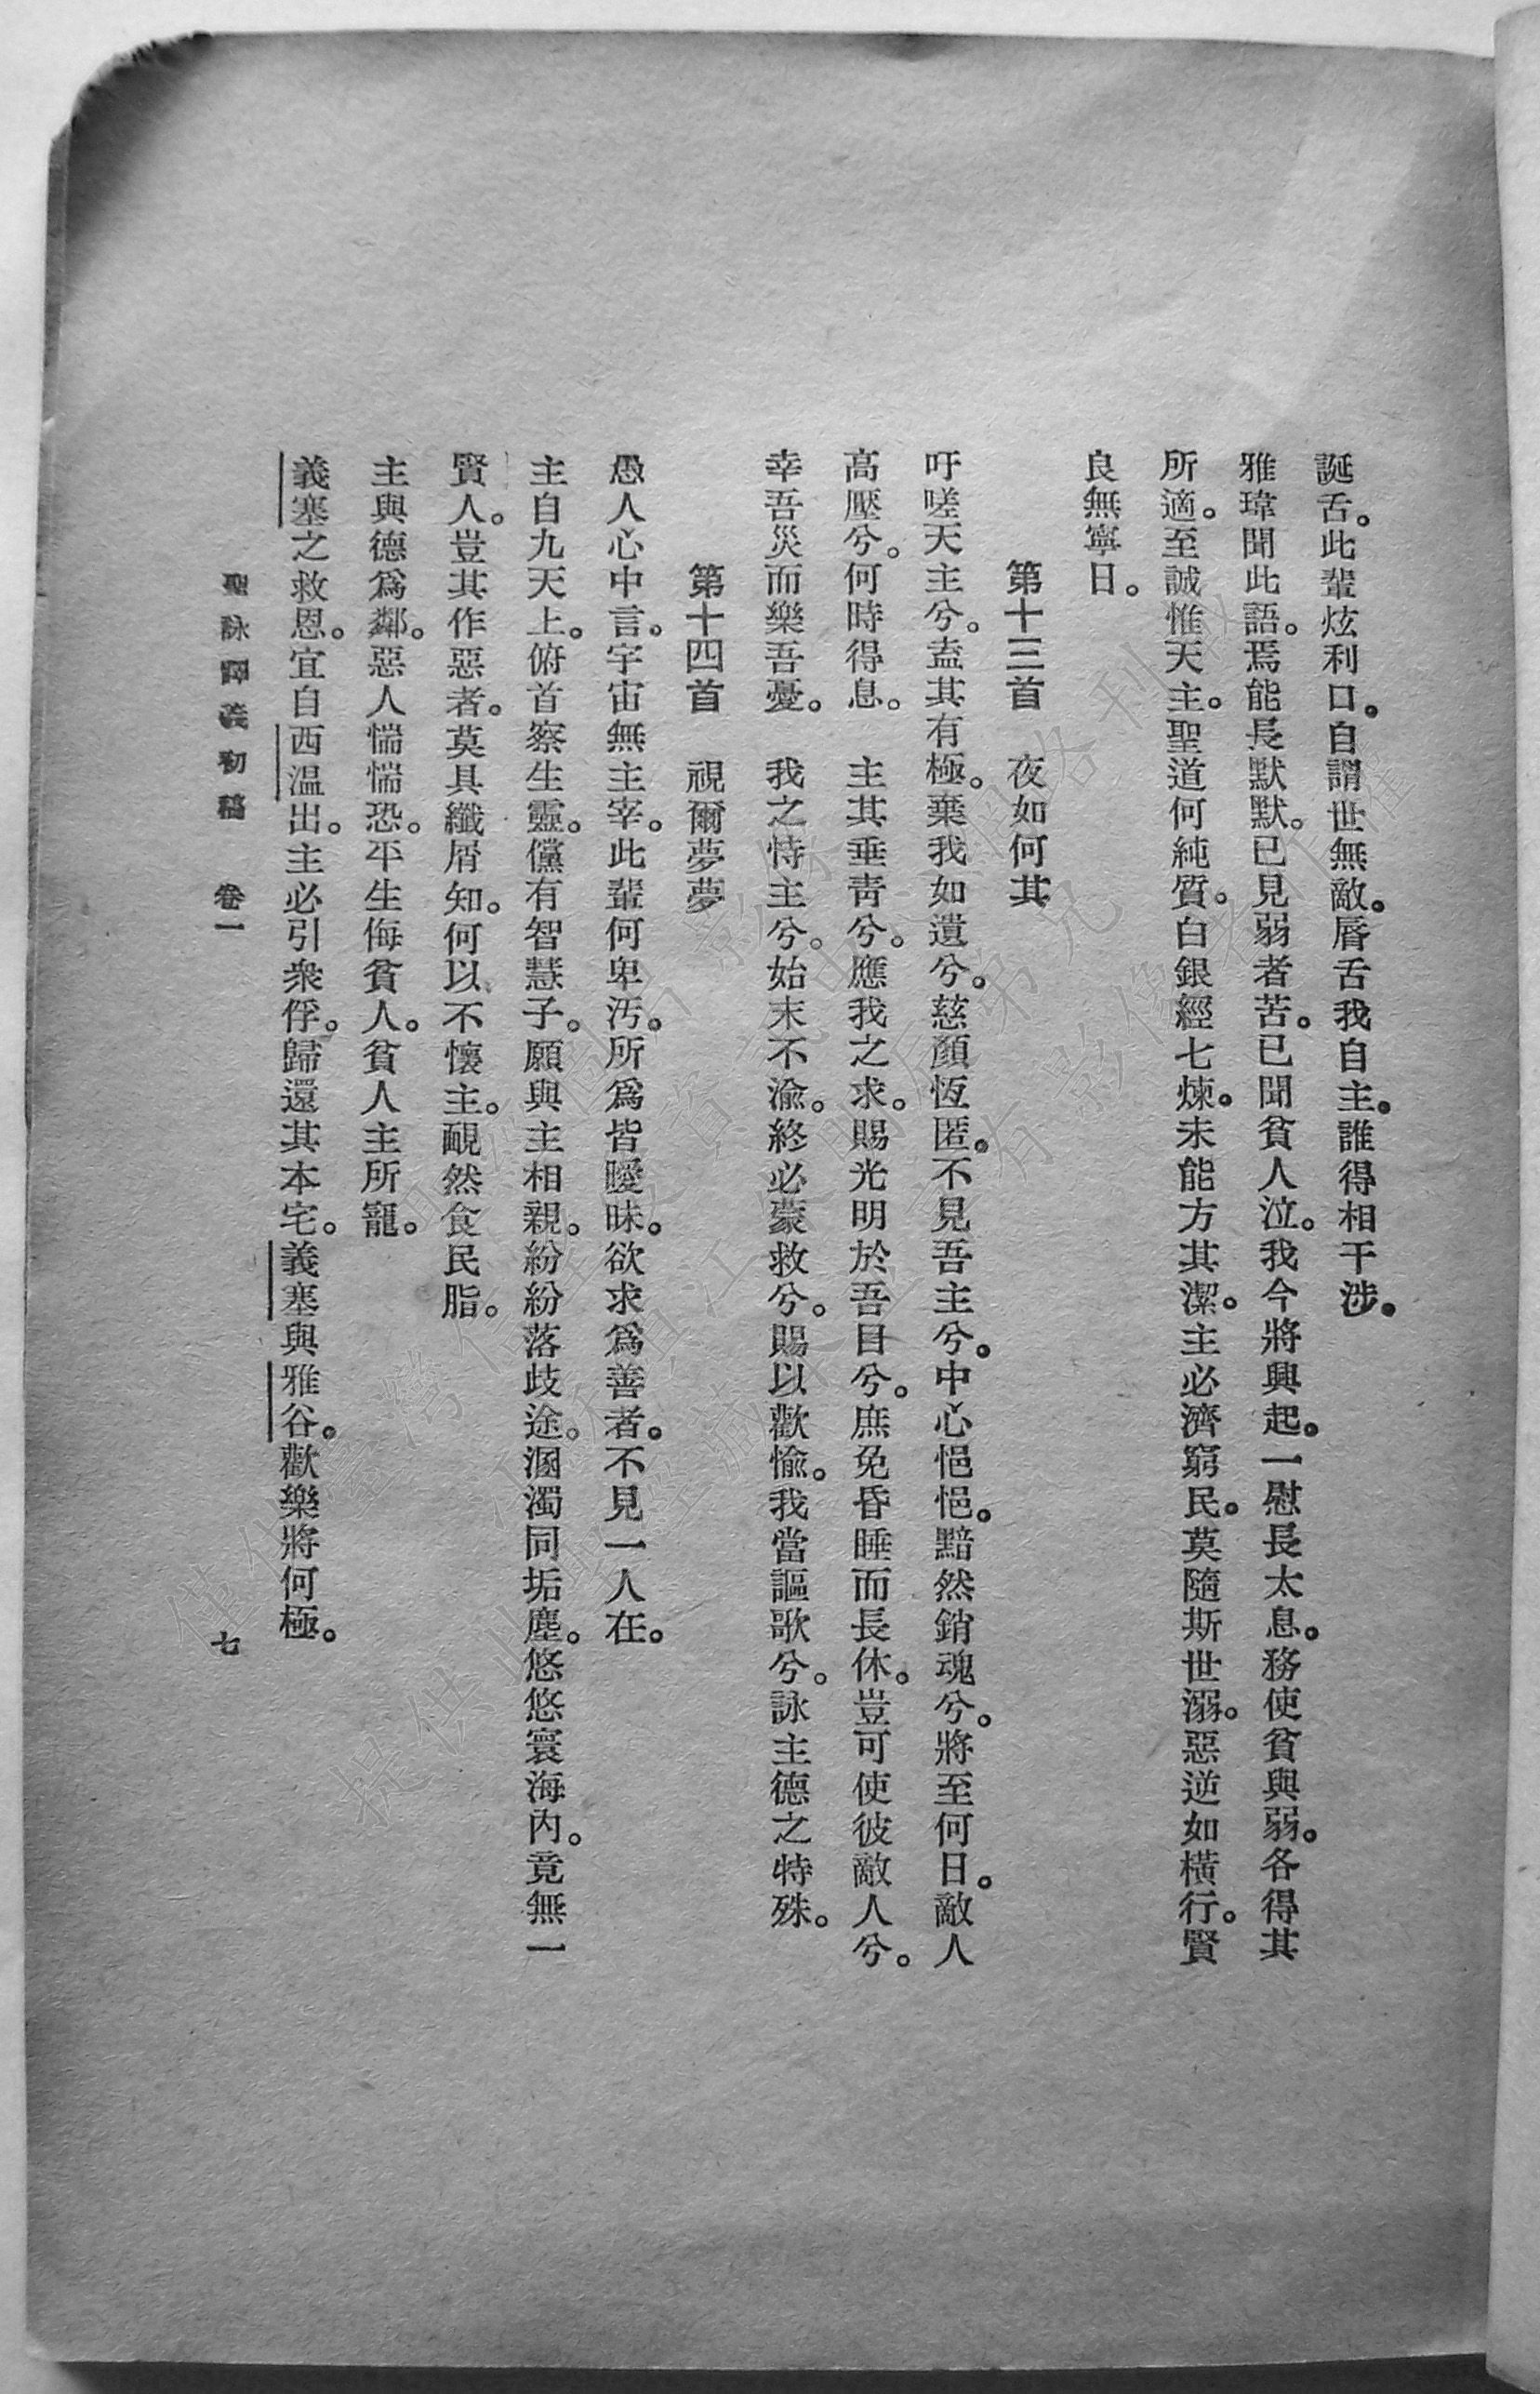 誕舌。此輩炫利口。自謂世無敵。唇舌我自主。誰得相干涉。
雅瑋聞此語。焉能長默默。已見弱者苦。已聞貧人泣。我今將興起。一慰長太息。務使貧與弱。各得其
所適。至誠惟天主。聖道何純質。白銀經七煉。未能方其潔。主必濟窮民。莫隨斯世溺。惡逆如橫行。賢
良無寧日。
第十三首　夜如何其
吁嗟天主兮。盍其有極。棄我如遺兮。慈顏恆匿。不見吾主兮。中心悒悒。黯然銷魂兮。將至何日。敵人
高壓兮。何時得息。　主其垂靑兮。應我之求。賜光明於吾目兮。庶免昏睡而長休。豈可使彼敵人兮。
幸吾災而樂吾憂。　我之恃主兮。始末不渝。終必蒙救兮。賜以歡愉。我當謳歌兮。詠主德之特殊。
第十四首　視爾夢夢
愚人心中言。宇宙無主宰。此輩何卑汚。所爲皆曖昧。欲求爲善者。不見一人在。
主自九天上。俯首察生靈。儻有智慧子。願與主相親。紛紛落歧途。溷濁同垢塵。悠悠寰海內。竟無一
賢人。豈其作惡者。莫具纖屑知。何以不懷主。靦然食民脂。
主與德爲鄰。惡人惴惴恐。平生侮貧人。貧人主所寵。
義塞之救恩。宜自西溫出。主必引衆俘。歸還其本宅。義塞與雅谷。歡樂將何極。
聖詠譯義初稿　卷一
七